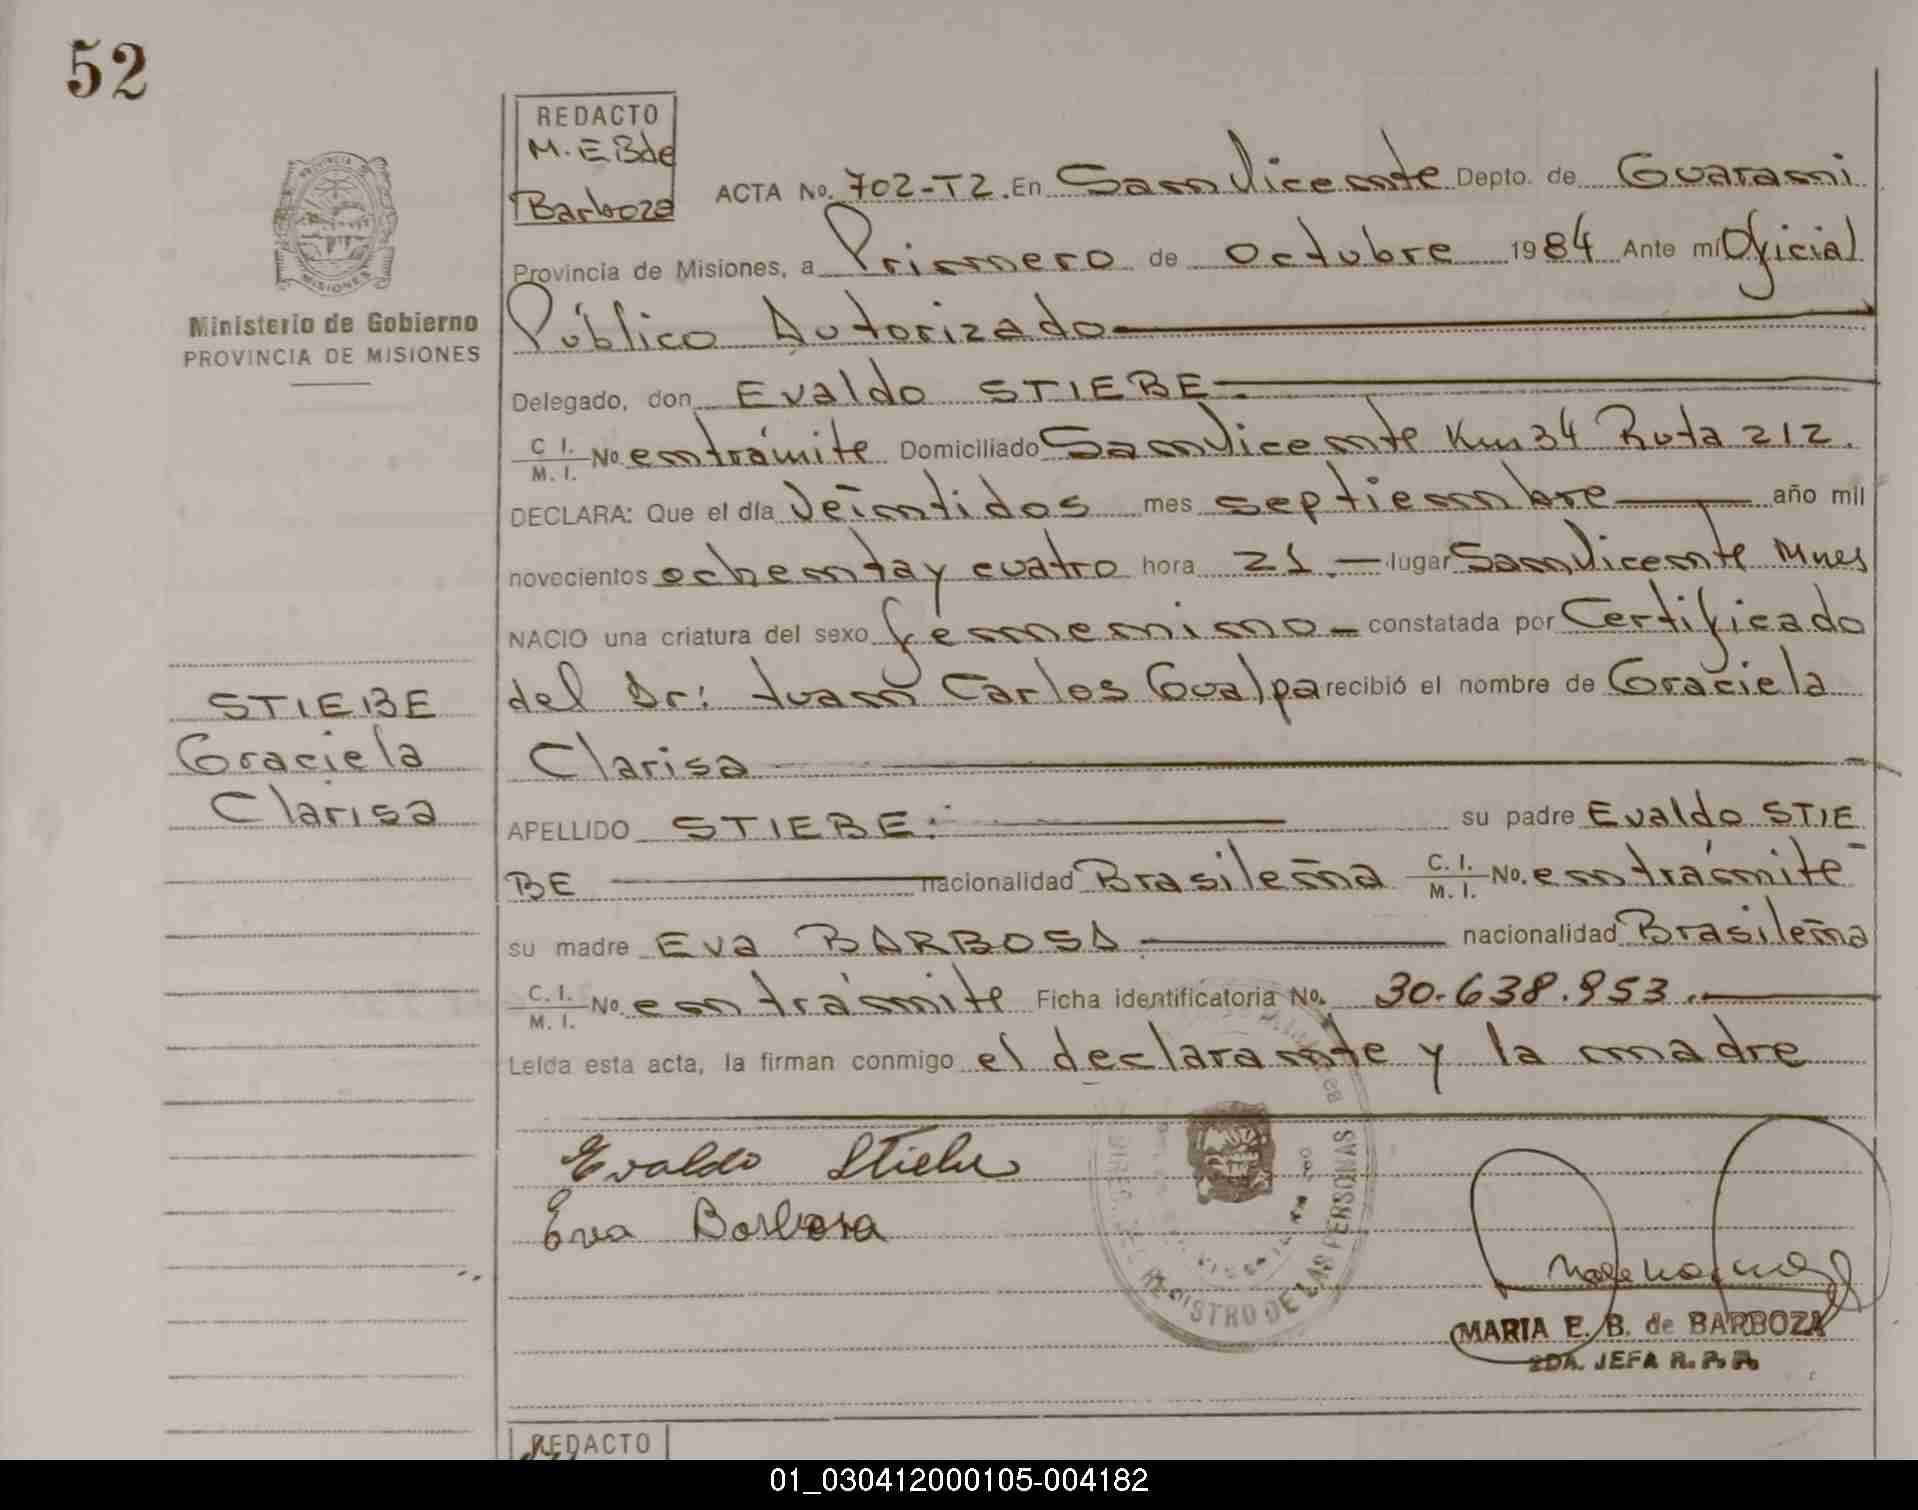 52
REDACTO
M. E B de
Barboza
PROVINCIA DE
MISIONES
Ministerio de Gobierno
PROVINCIA DE MISIONES
ACTA No. 702-T2. En San Vicente Depto. de Guarani
Provincia de Misiones, a Primero de octubre 1984 Ante mi Oficial
Público Autorizado
Delegado, don Evaldo STIEBE.
C. I. / M. I. No. en trámite Domiciliado San Vicente Km 34 Ruta 212.
DECLARA: Que el día Veintidos mes septiembre año mil
novecientos ochenta y cuatro hora 21. lugar San Vicente Mnes
NACIO una criatura del sexo femenino constatada por Certificado
del Dr: Juan Carlos Gualpa recibió el nombre de Graciela
Clarisa
STIEBE
Graciela
Clarisa
APELLIDO STIEBE. su padre Evaldo STIE
BE nacionalidad Brasileña C. I. / M. I. No. en trámite
su madre Eva BARBOSA nacionalidad Brasileña
C. I. / M. I. No. en trámite Ficha identificatoria No. 30.638.953.
Leída esta acta, la firman conmigo el declarante y la madre
Evaldo Stiebe
Eva Barbosa
REGISTRO DE LAS PERSONAS
MARIA E. B. de BARBOZA
2DA. JEFA R. P. P.
REDACTO
01_030412000105-004182